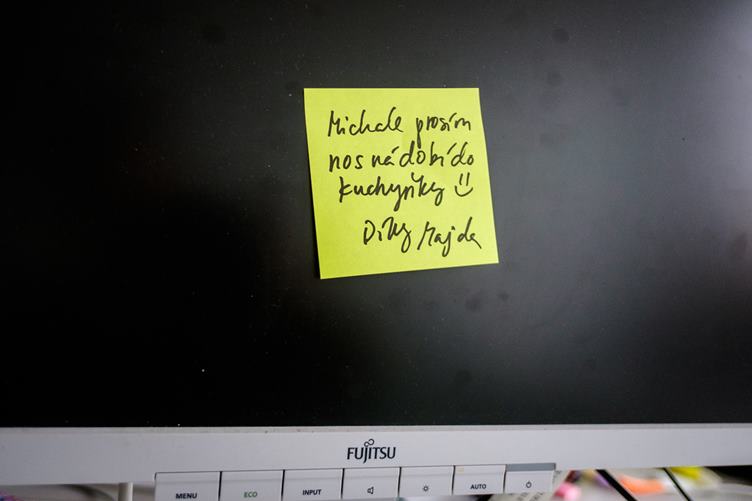 Michale prosím
nos nádobí do
kuchyňky
Díky Majda
FUJITSU
MENU
ECO
INPUT
AUTO